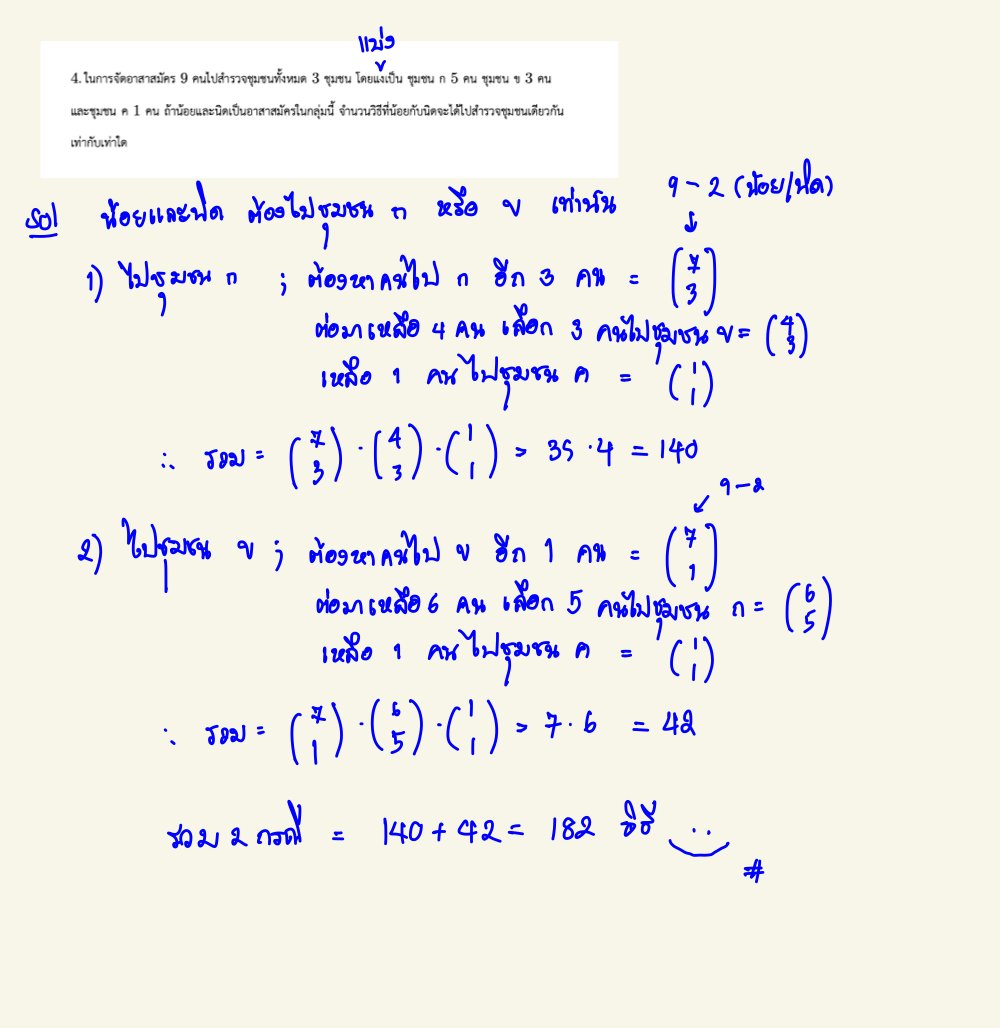 แบ่ง
4. ในการจัดอาสาสมัคร 9 คนไปสำรวจชุมชนทั้งหมด 3 ชุมชน โดยแง่เป็น ชุมชน ก 5 คน ชุมชน ข 3 คน
และชุมชน ค 1 คน ถ้าน้อยและนิดเป็นอาสาสมัครในกลุ่มนี้ จำนวนวิธีที่น้อยกับนิดจะได้ไปสำรวจชุมชนเดียวกัน
เท่ากับเท่าใด
9 - 2 (น้อย/นิด)
Sol น้อยและนิด ต้องไปชุมชน ก หรือ ข เท่านั้น
1) ไปชุมชน ก ; ต้องหาคนไป ก อีก 3 คน = (7 3)
ต่อมาเหลือ 4 คน เลือก 3 คนไปชุมชน ข = (4 3)
เหลือ 1 คน ไปชุมชน ค = (1 1)
∴ รวม = (7 3) · (4 3) · (1 1) = 35 · 4 = 140
9 - 2
2) ไปชุมชน ข ; ต้องหาคนไป ข อีก 1 คน = (7 1)
ต่อมาเหลือ 6 คน เลือก 5 คนไปชุมชน ก = (6 5)
เหลือ 1 คน ไปชุมชน ค = (1 1)
∴ รวม = (7 1) · (6 5) · (1 1) = 7 · 6 = 42
รวม 2 กรณี = 140 + 42 = 182 วิธี
#